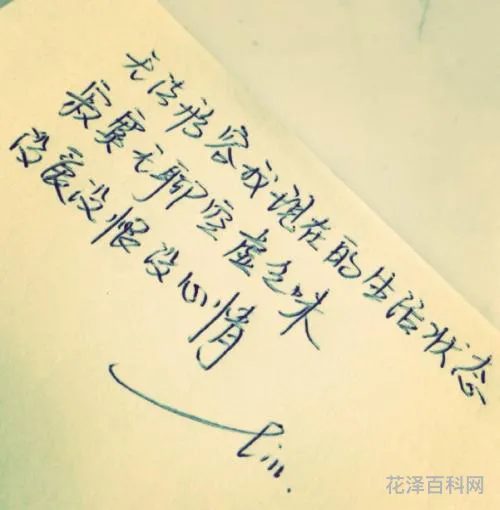 无法形容我现在的生活状态
寂寞无聊空虚乏味
没爱没恨没心情
Lin.
花泽百科网